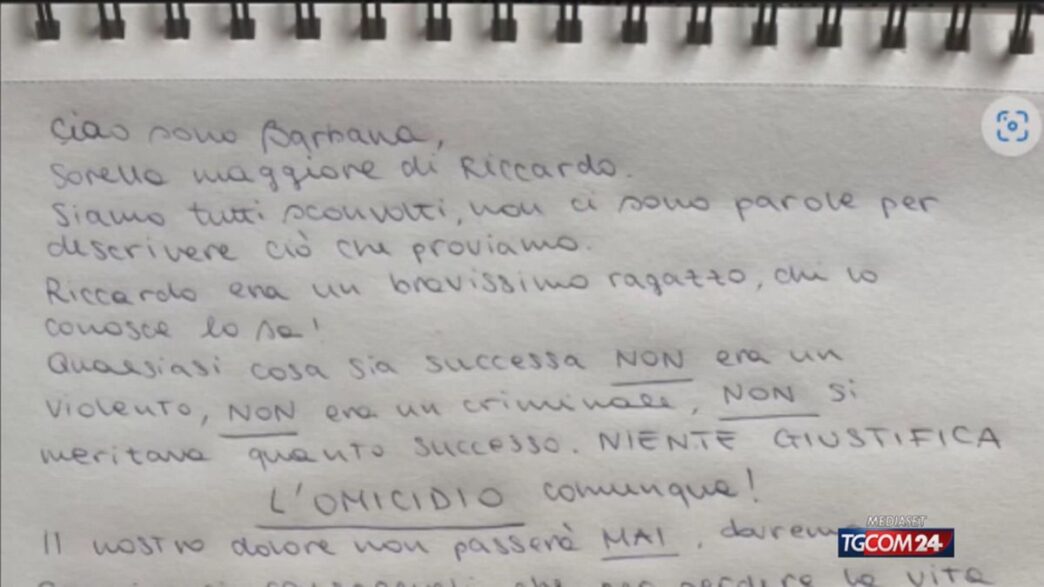 Ciao sono Barbara,
Sorella maggiore di Riccardo.
Siamo tutti sconvolti, non ci sono parole per
descrivere ciò che proviamo.
Riccardo era un bravissimo ragazzo, chi lo
conosce lo sa!
Qualsiasi cosa sia successa NON era un
violento, NON era un criminale, NON si
meritava quanto successo. NIENTE GIUSTIFICA
L'OMICIDIO comunque!
Il nostro dolore non passerà MAI, daremo
che per perdere la vita
MEDIASET
TGCOM24